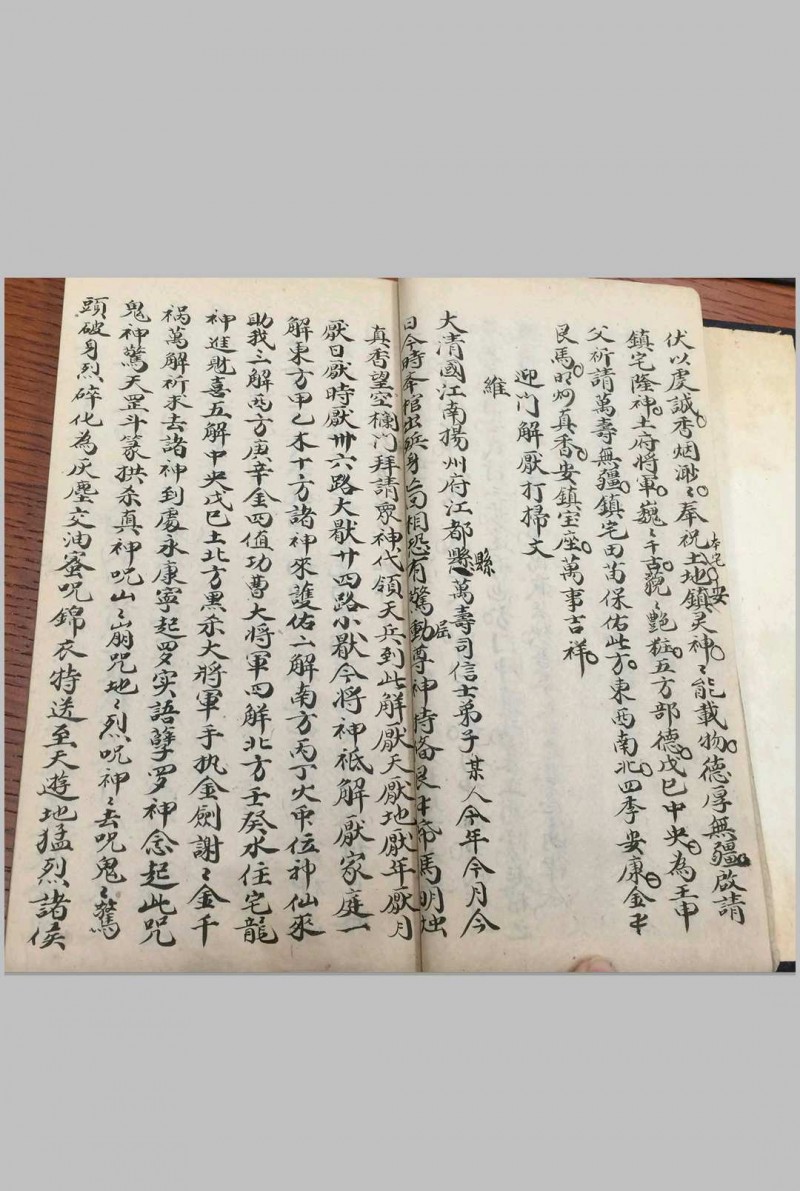 伏以虔誠香烟渺〻奉祝土地鎮灵神〻能載物德厚無疆啟請
本宅安
鎮宅隆神土府將軍巍〻千古貌〻艷粧五方部德戊巳中央為王申
父祈請萬壽無疆鎮宅田苗保佑此方東西南北四季安康金
良馬明烟真香安鎮宝座萬事吉祥
迎門解厭打掃文
維
大清國江南揚州府江都縣萬壽司信士弟子某人今年今月今
縣
日今時奉棺出殯身亡相恐有驚動尊神特备良馬明
真香望空欄門拜請眾神代領天兵到此解厭天厭地厭年厭月
厭日厭時厭卅六路大厭廿四路小厭今將神祇解厭家庭一
解東方甲乙木十方諸神來護佑二解南方丙丁火中位神仙來
助我三解西方庚辛金四值功曹大將軍四解北方壬癸水住宅龍
神進財喜五解中央戊巳土北方黑杀大將軍手执金劍謝〻金千
祸萬解祈求去諸神到處永康寧起罗实語孽罗神念起此咒
鬼神驚天罡斗篆拱杀真神咒山〻崩咒地〻烈咒神〻去咒鬼〻驚
頭破身烈碎化為灰塵交油蜜咒錦衣特送至天遊地猛烈諸侯